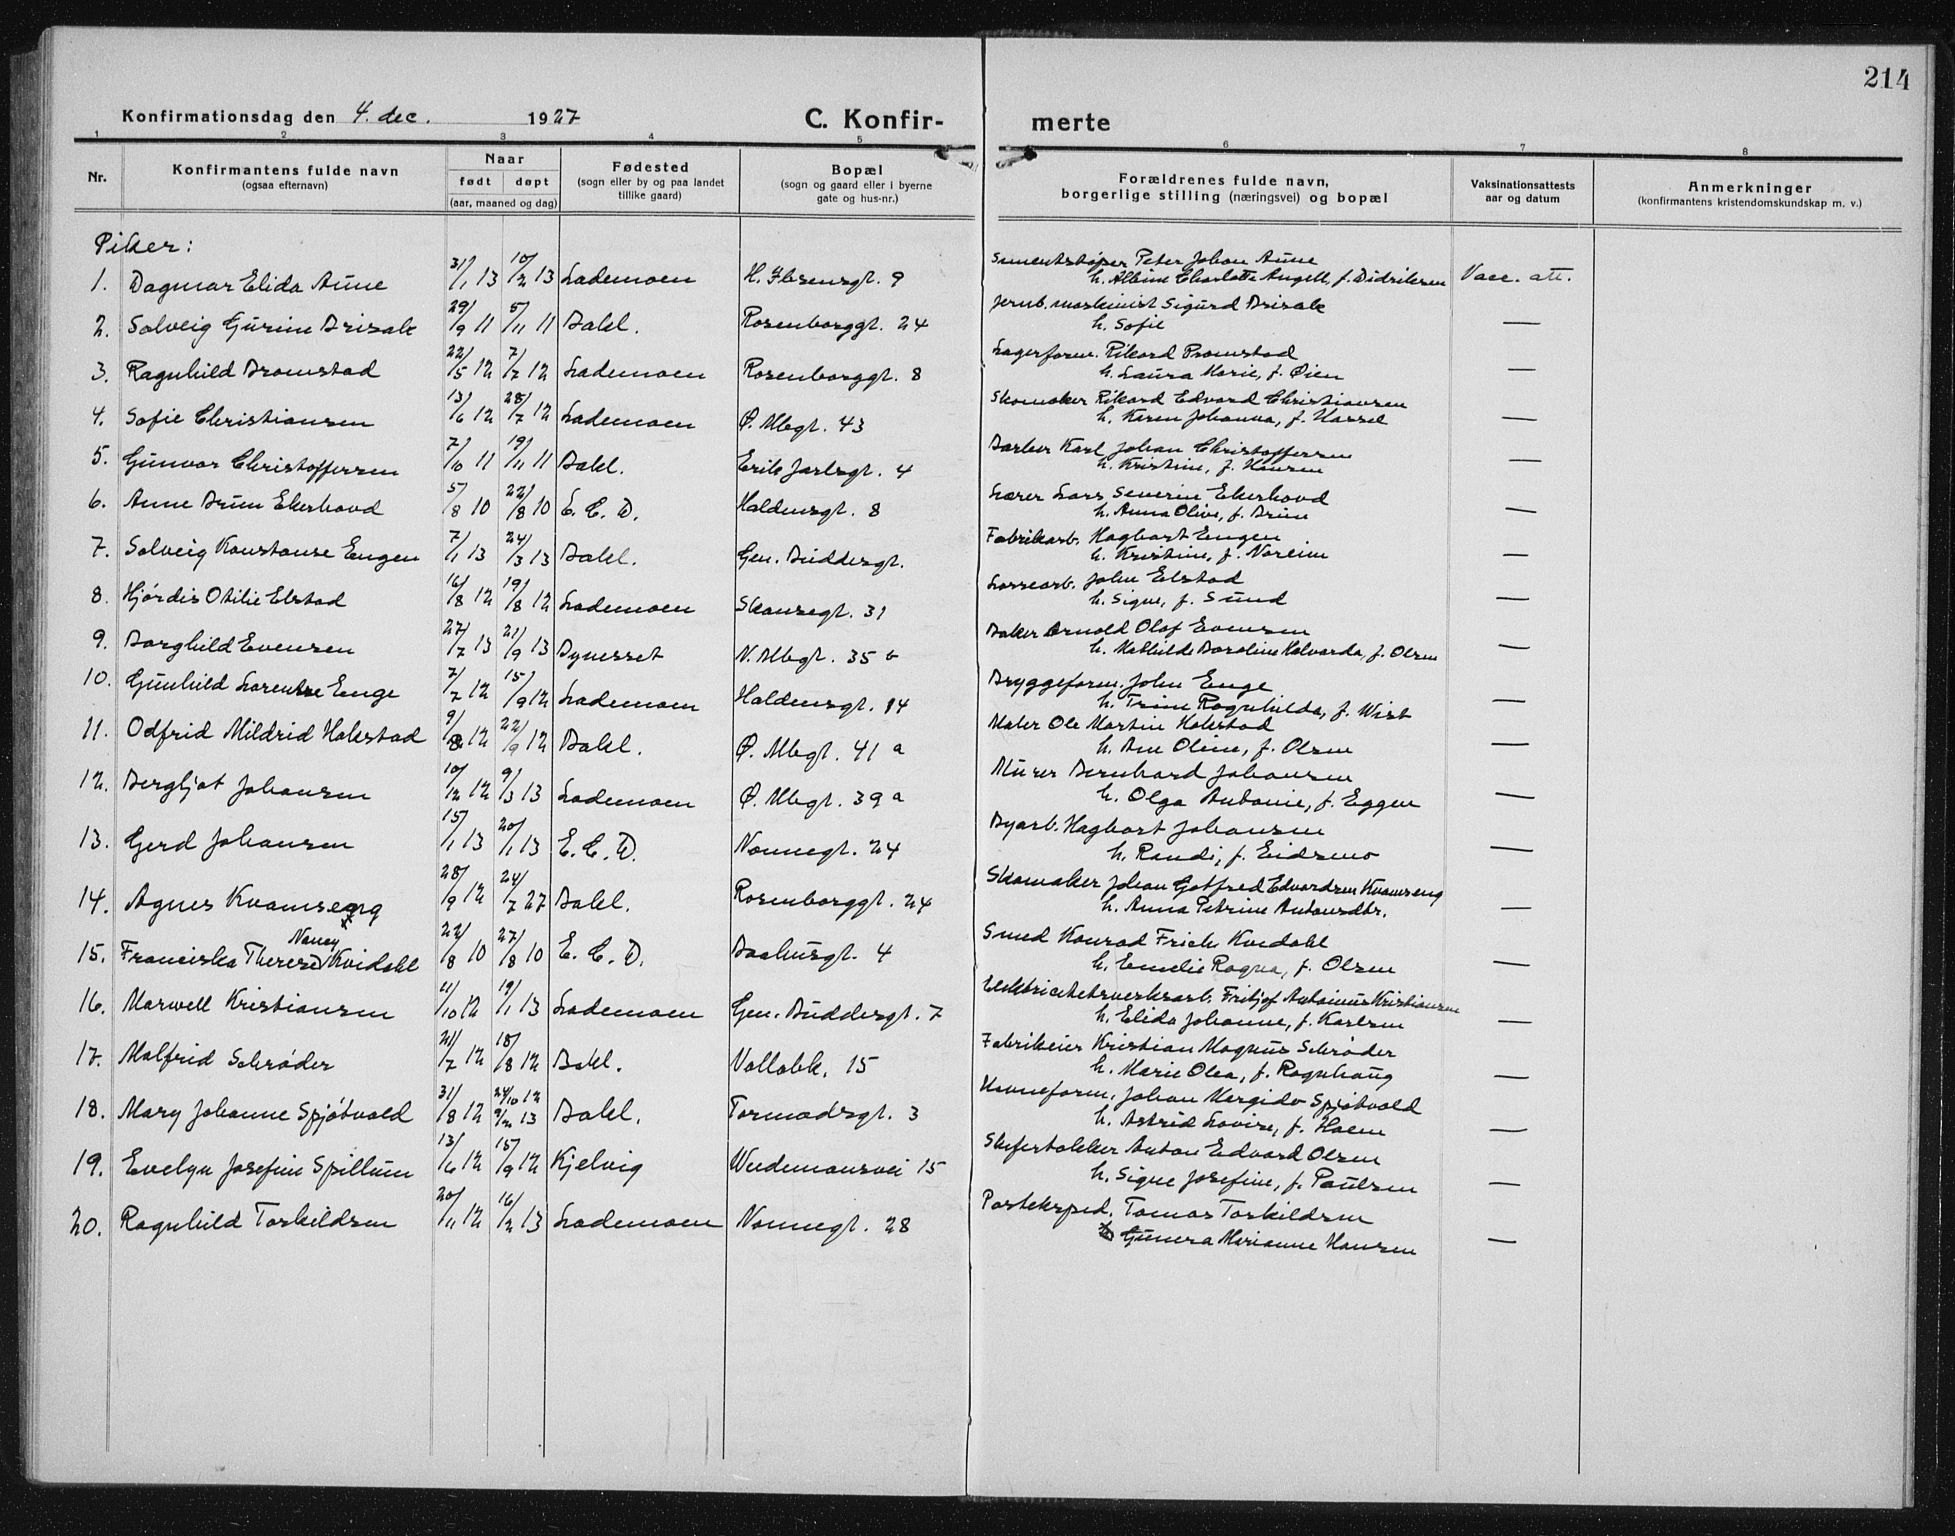 214
Konfirmationsdag den 4. dec. 1927
C. Konfirmerte
1 2 3 4 5 6 7 8
Nr.
Konfirmantens fulde navn
(ogsaa efternavn)
Naar
født døpt
(aar, maaned og dag)
Fødested
(sogn eller by og paa landet
tillike gaard)
Bopæl
(sogn og gaard eller i byerne
gate og hus-nr.)
Forældrenes fulde navn,
borgerlige stilling (næringsvei) og bopæl
Vaksinationsattests
aar og datum
Anmerkninger
(konfirmantens kristendomskundskap m. v.)
Piker:
1. Dagmar Elida Aune 31/1 13 10/2 13 Lademoen H. Ibsensgt. 9 Sementstøper Peter Johan Aune
h. Albine Charlotte Angell, f. Didriksen Vacc. att.
2. Solveig Gurine Brisak 29/9 11 5/11 11 Bakl. Rosenborggt. 24 Jernb. maskinist Sigurd Brisak
h. Sofie —
3. Ragnhild Bromstad 22/5 12 7/7 12 Lademoen Rosenborggt. 8 Lagerform. Rikard Bromstad
h. Laura Marie, f. Øien —
4. Sofie Christiansen 13/6 12 28/7 12 Lademoen Ø. Mbgt. 43 Skomaker Rikard Edvard Christiansen
h. Karen Johanna, f. Hassel —
5. Gunvor Christoffersen 7/10 11 19/11 11 Bakl. Erik Jarlsgt. 4 Barber Karl Johan Christoffersen
h. Kristine, f. Hansen —
6. Anne Bruun Ekerhovd 5/8 10 22/8 10 E. C. D. Haldensgt. 8 Lærer Lars Severin Ekerhovd
h. Anna Olive, f. Brun —
7. Solveig Konstanse Engen 7/1 13 24/3 13 Bakl. Gen. Buddesgt. Fabrikarb. Hagbart Engen
h. Kristine, f. Noreim —
8. Hjørdis Otilie Elstad 16/8 12 19/8 12 Lademoen Skansegt. 31 Lossearb. John Elstad
h. Signe, f. Sund —
9. Borghild Evensen 27/7 13 21/9 13 Bynesset N. Mbgt. 35 b Baker Arnold Olaf Evensen
h. Mathilde Baroline Halvarda, f. Olsen —
10. Gunhild Lorentse Enge 7/7 12 15/9 12 Lademoen Haldensgt. 14 Bryggeform. John Enge
h. Trine Ragnhilda, f. Wist —
11. Odfrid Mildrid Hakstad 9/8 12 22/9 12 Bakl. Ø. Mbgt. 41 a Maler Ole Martin Hakstad
h. Ane Oline, f. Olsen —
12. Bergljot Johansen 10/12 12 9/3 13 Lademoen Ø. Mbgt. 39 a Murer Bernhard Johansen
h. Olga Antonie, f. Eggen —
13. Gerd Johansen 15/1 13 20/1 13 E. C. D. Nonnegt. 24 Byarb. Hagbart Johansen
h. Randi, f. Eidsmo —
14. Agnes Kvamseng 28/9 12 24/7 27 Bakl. Rosenborggt. 24 Skomaker Johan Gotfred Edvardsen Kvamseng
h. Anna Petrine Antonsdtr. —
15. Franciska Therese Nancy Kvidahl 22/8 10 27/8 10 E. C. D. Baahusgt. 4 Smed Konrad Frich Kvidahl
h. Emelie Ragna, f. Olsen —
16. Marwell Kristiansen 11/10 12 19/1 13 Lademoen Gen. Buddesgt. 7 Elektricitetsverksarb. Fritjof Antonius Kristiansen
h. Elida Johanne, f. Karlsen —
17. Malfrid Schrøder 21/7 12 18/8 12 Bakl. Vollabk. 15 Fabrikeier Kristian Magnus Schrøder
h. Marie Olea, f. Ragnhaug —
18. Mary Johanne Spjøtvold 31/8 12 24/10 12 9/2 13 Bakl. Tormodsgt. 3 Havneform. Johan Spjøtvold
h. Astrid Lovise, f. Haem —
19. Evelyn Josefine Spillum 13/6 12 15/9 12 Kjelvig Weidemansvei 15 Skifertakker Anton Edvard Olsen
h. Signe Josefine, f. Paulsen —
20. Ragnhild Torkildsen 20/11 12 16/2 13 Lademoen Nonnegt. 28 Posteksped. Tomas Torkildsen
Gunera Marianne Hansen —